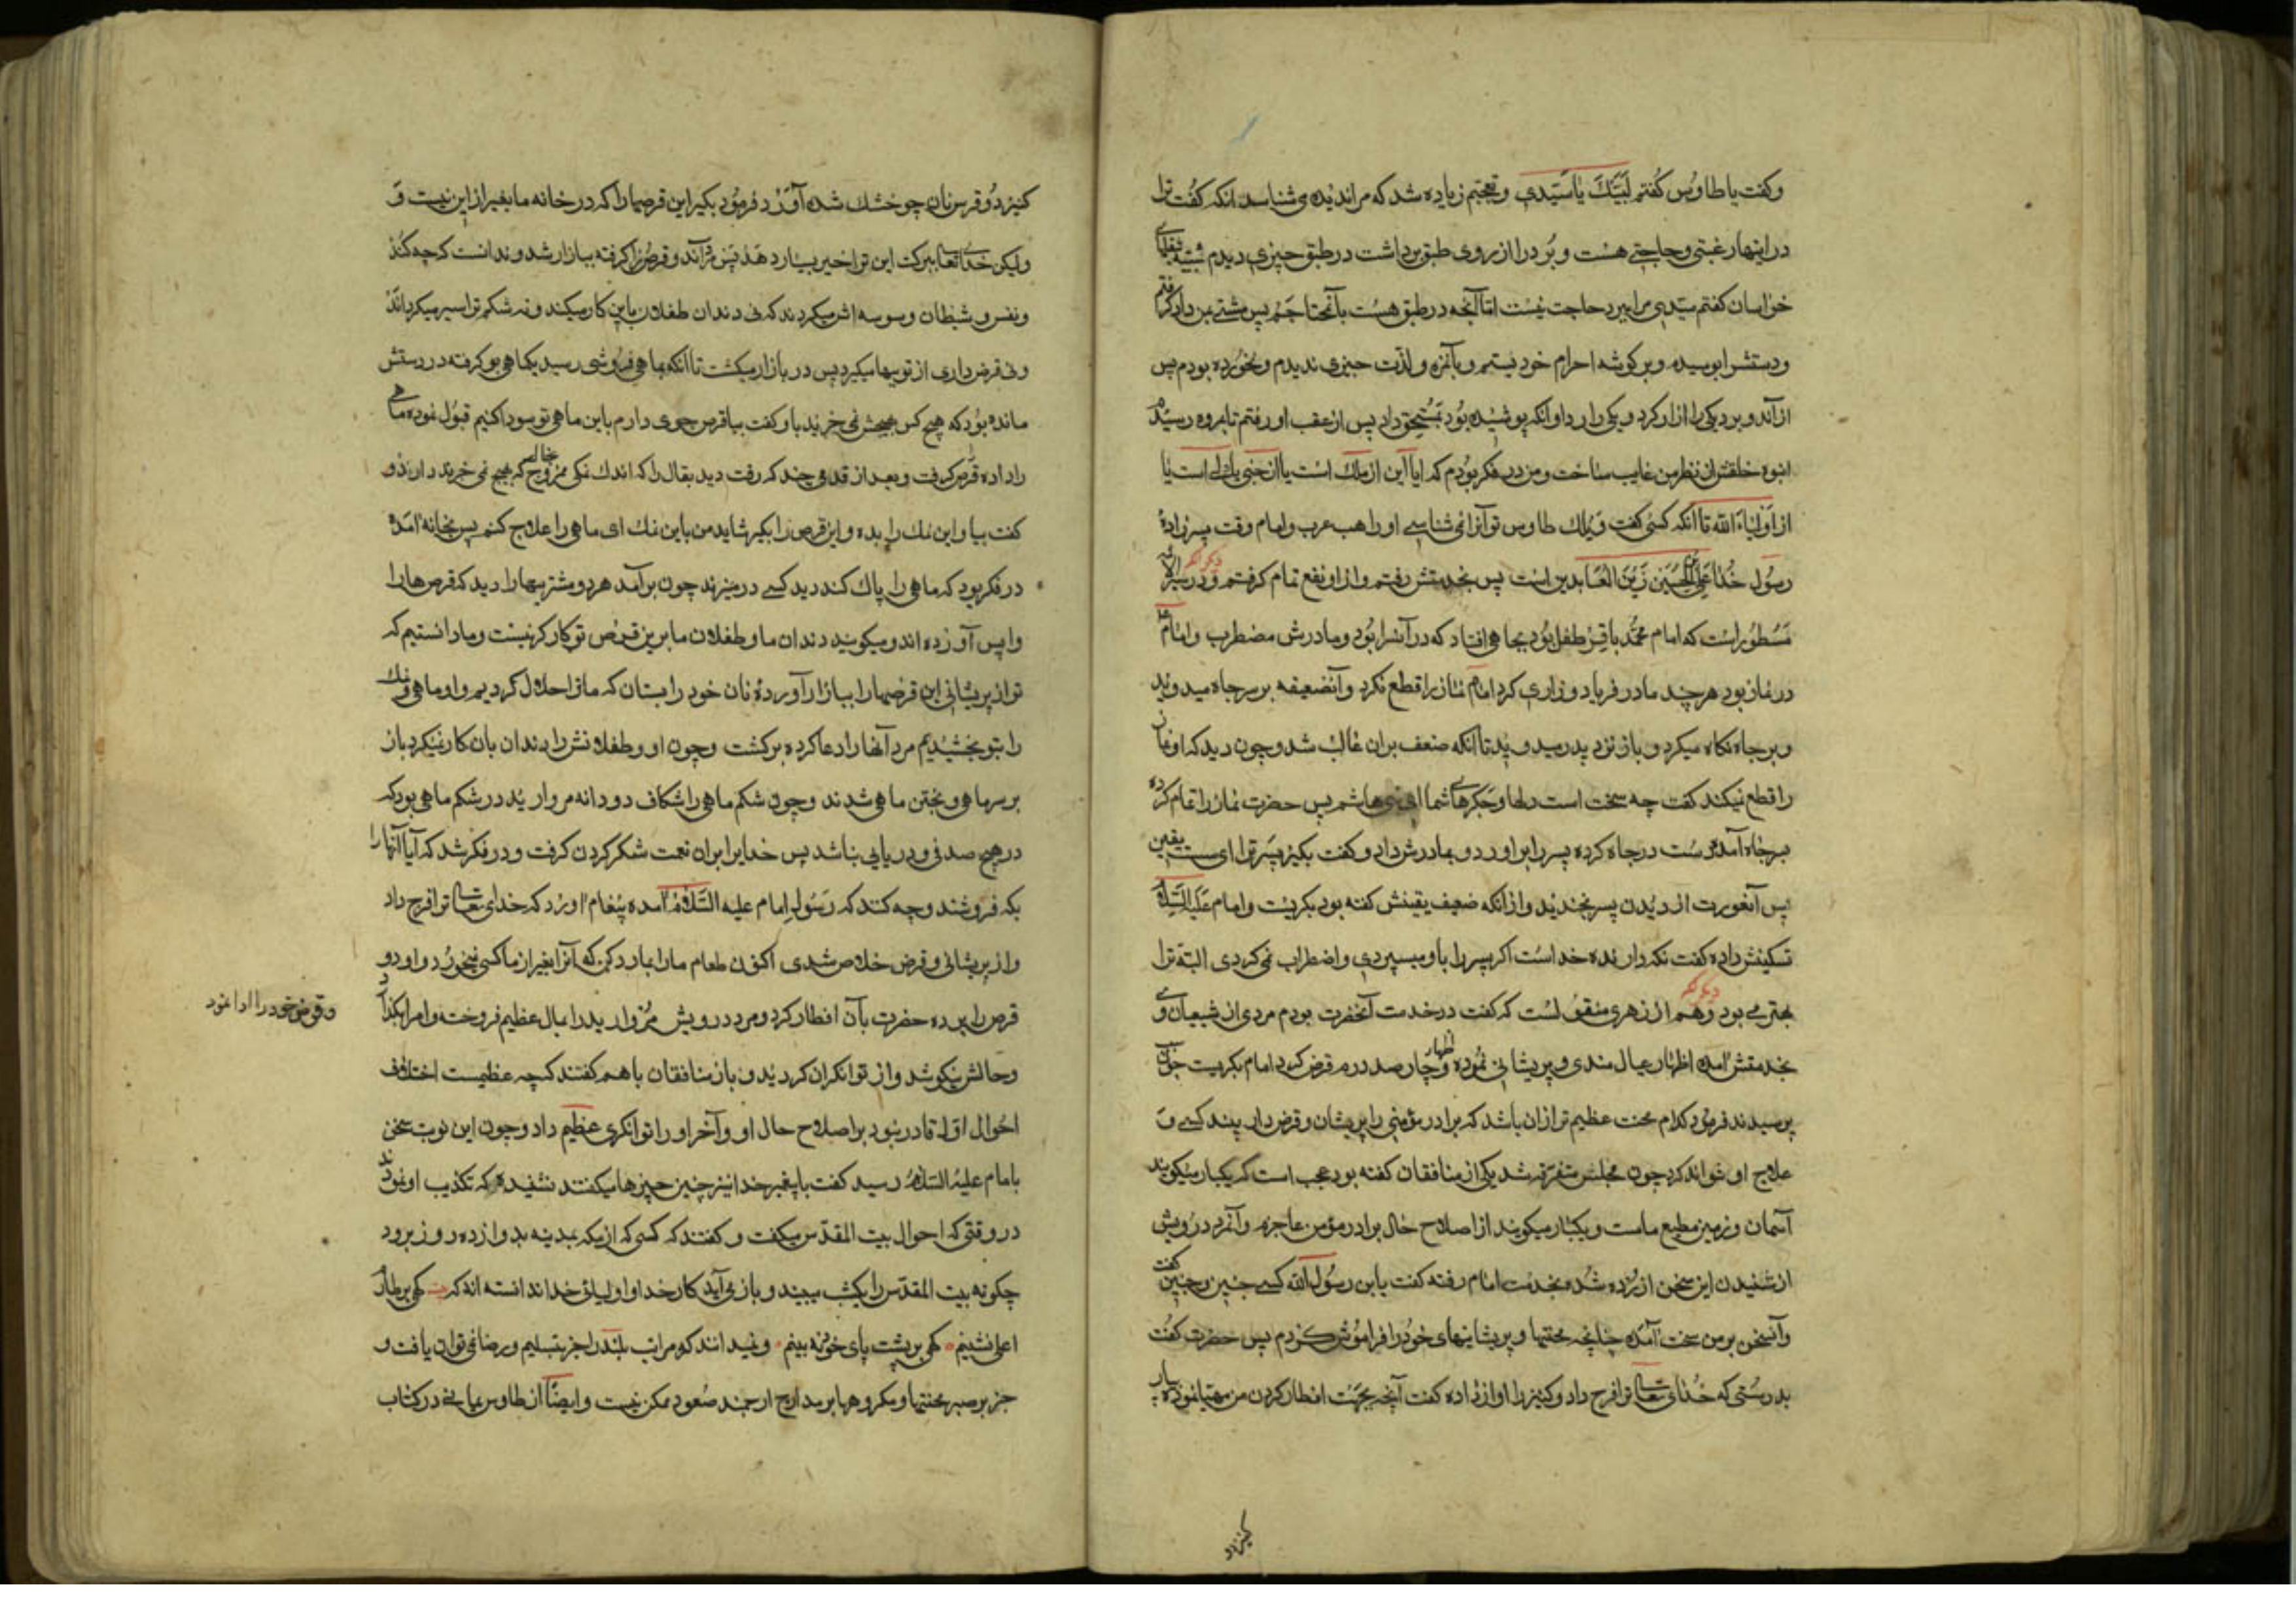 وکفت یا طاوس کفتم لبیك یا سیدی و تعجبم زیاده شد که مرا ندیده می شناسد انکه کفت ترا
در اینها رغبتی و حاجتی هست و برد را از روی طبق برداشت در طبق چیزی دیدم شبیه بنقلهای
خراسان کفتم سیدی مرا ببرد حاجت نیست اما آنچه در طبق هست بآن محتاجم پس مشتی بمن داد کرفتم
و دستش را بوسیده و بر کوشه احرام خود بستم و بآن مزه و لذت چیزی ندیدم و نخورده بودم پس
از آن دو برد یکی را ازار کرد و یکی را ردا و انکه پوشیده بود بمستحق داد پس از عقب او رفتم تا بمروه رسید
انبوه خلقش از نظر من غایب ساخت و من در فکر بودم که ایا این از ملك است یا از جنی یا
از اولیاء الله تا انکه کسی کفت ویلك طاوس تو آنرا نمی شناسی او راهب عرب و امام وقت پسر زادۀ
رسول خدا علی بن الحسین زین العابدین است پس بخدمتش رفتم و از او نفع تمام کرفتم و دیکر انکه در سیر الائمه
مسطور است که امام محمد باقر طفل بود بچاهی افتاد که در آنسرا بود و مادرش مضطرب و امام
در نماز بود هر چند مادر فریاد و زاری کرد امام نماز را قطع نکرد و آنضعیفه بر سر چاه میدوید
و بر چاه نکاه میکرد و باز نزد پدر میدوید تا آنکه ضعف بر ان غالب شد و چون دید که او نماز
را قطع نمیکند کفت چه سخت است دلها و جکرهای شما ای بنی هاشم پس حضرت نماز را تمام کرده
بر سر چاه آمد و دست در چاه کرده پسر را براورد و بمادرش داد و کفت بکیر پسرترا ای سست یقین
پس آنعورت از دیدن پسر بخندید و از انکه ضعیف یقینش کفته بود بکریست و امام علیه السلام
تسکینش داده کفت نکه دارنده خداست اکر پسر را باو میسپردی و اضطراب نمی کردی البته ترا
بهتر می بود دیکر انکه و هم از زهری منقول است که کفت در خدمت آنحضرت بودم مردی از شیعیان وی
بخدمتش آمده اظهار عیال مندی و پریشانی نموده و اظهار چهار صد درم قرض کرد امام بکریست چون
پرسیدند فرمود کدام محنت عظیم تر از ان باشد که برادر مؤمنی را پریشان و قرض دار بیند کسی و
علاج او نتواند کرد چون مجلس متفرق شد یکی از منافقان کفته بود عجب است که یکبار میکویند
آسمان و زمین مطیع ماست و یکبار میکویند از اصلاح حال برادر مؤمن عاجزم و آنمرد درویش
از شنیدن این سخن ازرده شد و بخدمت امام رفته کفت یابن رسول الله کسی چنین و چنین کفت
و آنسخن بر من سخت آمده چنانچه محنتها و پریشانیهای خود را فراموش کردم پس حضرت کفت
بدرستی که خدای تعالی ترا فرج داد و کنیز را آواز داده کفت آنچه بجهت افطار کردن من مهیا نموده بیار
کنیز دو
کنیز دو قرص نان جو خشك شده آورد فرمود بکیر این قرصها را که در خانه ما بغیر از این نیست و
ولیکن خدای تعالی ببرکت این ترا خیر بسیار دهد پس مرد آن دو قرص را کرفته ببازار شد و ندانست که چه کند
و نفس و شیطان وسوسه اش میکردند که نه دندان طفلان باین کار میکند و نه شکم ترا سیر میکرداند
و نه قرض داری از تو بیها میکیرد پس در بازار میکشت تا آنکه بماهی فروشی رسید یکماهی بو کرفته در دستش
مانده بود که هیچ کس بهیچش نمی خرید باو کفت بیا قرص جوی دارم باین ماهی تو سودا کنیم قبول نموده ماهی
را داده قرص کرفت و بعد از قدمی چند که رفت دید بقال را که اندك نمکی ممزوج بخاك که بهیچ نمی خریدند دارد او
کفت بیا و این نمك را بده و این قرص را بکیر شاید من باین نمك ای ماهی را علاج کنم پس بخانه آمده
در فکر بود که ماهی را پاك کند دید کسی در میزند چون برآمد هر دو مشتریها را دید که قرص ها را
واپس آورده اند و میکویند دندان ما و طفلان ما برین قرص تو کار کر نیست و ما دانستیم که
تو از پریشانی این قرصها را ببازار آورده نان خود را بستان که ما ترا حلال کردیم و او ماهی و نمك
را بتو بخشیدیم مرد آنها را دعا کرده برکشت و چون او و طفلانش را دندان بان کار نمیکرد باز
بر سر ماهی و پختن ماهی شدند و چون شکم ماهی را شکاف دو دانه مروارید در شکم ماهی بود که
در هیچ صدفی و دریایی نباشد پس خدایرا بران نعمت شکر کردن کرفت و در فکر شد که آیا آنها را
بکه فروشند و چه کند که رسول امام علیه السلام آمده پیغام آورد که خدای تعالی ترا فرج داد
و از پریشانی و قرض خلاص شدی اکنون طعام ما را بما رد کن که آنرا بغیر از ما کسی نمیخورد و او دو
قرص را برده حضرت بآن افطار کرد و مرد درویش مروارید را بمال عظیم فروخت و امرا بکذارد
و قرض خود را ادا نمود
و حالش نیکو شد و از توانکران کردید و باز منافقان با هم کفتند که چه عظیمست اختلاف
احوال اول قادر نبود بر اصلاح حال او و آخر او را توانکری عظیم داد و چون این نوبت سخن
بامام علیه السلام رسید کفت با پیغمبر خدا نیز چنین چیزها میکفتند نشنیده که تکذیب او نمودند
در وقتی که احوال بیت المقدس میکفت و کفتند که کسی که از مکه بمدینه بدوازده روز برود
چکونه بیت المقدس را یکشب ببیند و باز می آید کار خدا و اولیای خدا ندانسته اند که کهی بر طارم
اعلی نشینم کهی بر پشت پای خود نه بینم و نمیدانند که مراتب بلند را جز بتسلیم و رضا نمی توان یافت و
جز بر صبر محنتها و مکروهها بر مدارج ارجمند صعود ممکن نیست و ایضا از طاوس یمانی در کتاب